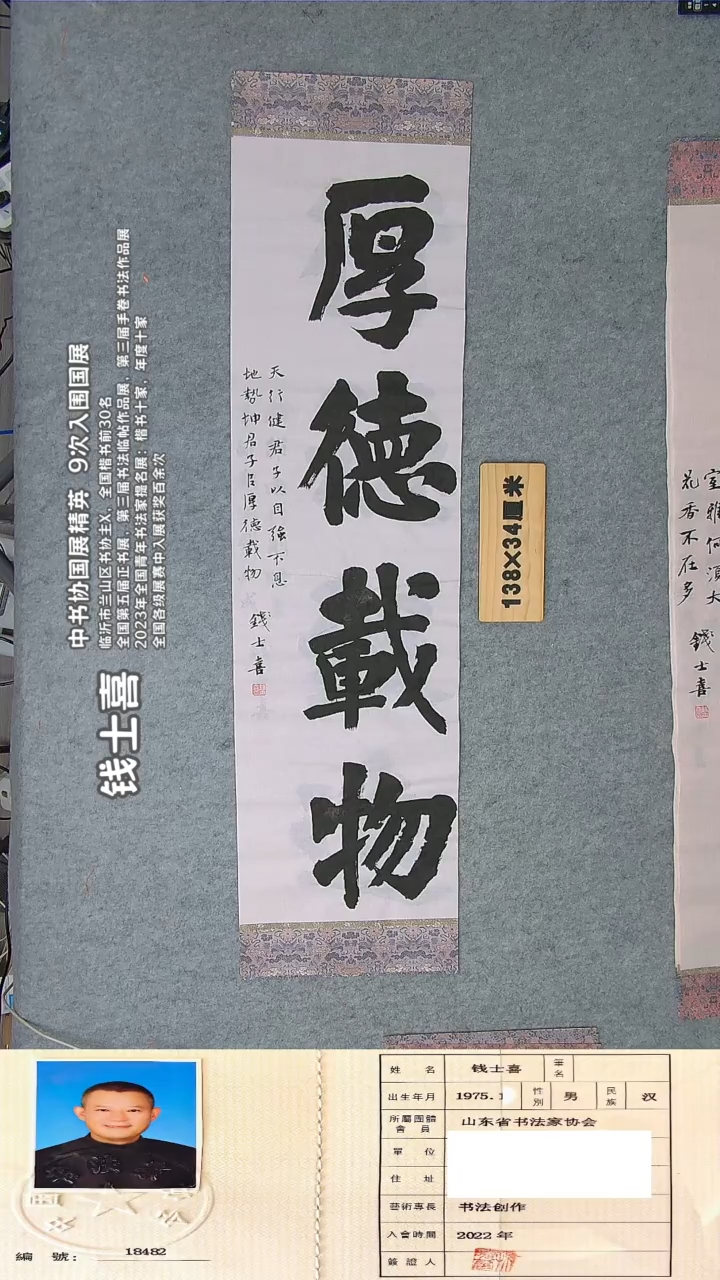 厚德載物
天行健君子以自强不息
地勢坤君子以厚德載物
錢士喜
138×34厘米
室雅何須大
花香不在多
錢士喜
钱士喜
中书协国展精英 9次入围国展
临沂市兰山区书协主X、全国楷书前30名
全国第五届正书展、第三届书法临帖作品展、第三届手卷书法作品展
2023年全国青年书法家提名展：楷书十家，年度十家
全国各级展赛中入展获奖百余次
編 號： 18482
姓 名 钱士喜 筆名
出生年月 1975.1 性別 男 民族 汉
所屬團體會員 山东省书法家协会
單 位
住 址
藝術專長 书法创作
入會時間 2022年
簽證人